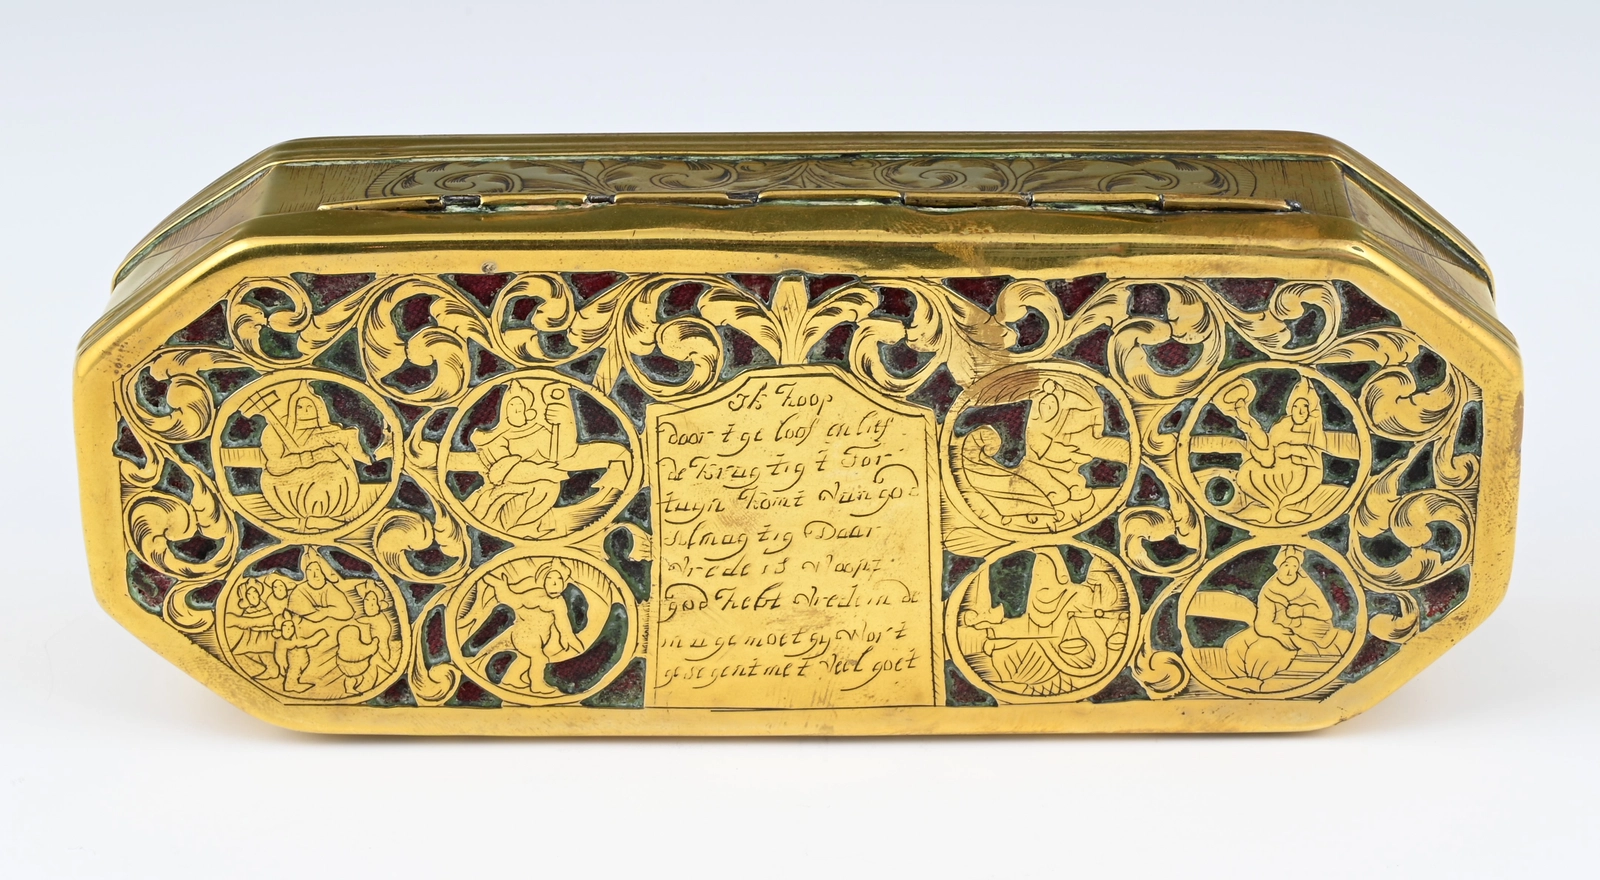 Ik hoop
door t ge loof en lifd
de krag tig t For
tuyn komt van god
Almag tig Daar
vrede is voopt
god hebt vrede in de
in u ge moet gy wort
ge se gent met veel goet